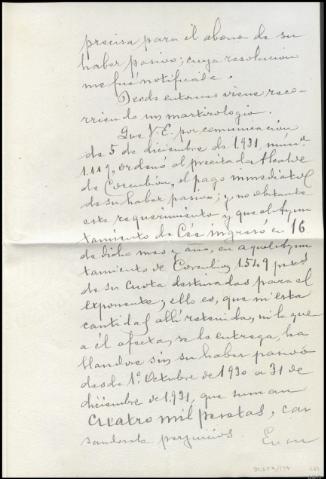 precisa para el abono de su
haber pasivo; cuya resolucion
me fué notificada.
Desde entonces viene reco-
rriendo un martirologio.
Que V.E. por comunicación
de 5 de diciembre de 1931, num.º
1.119, ordenó al precitado Alcalde
de Corcubión, el pago inmediato
de su haber pasivo; y no obstante
este requerimiento y que el Ayun-
tamiento de Cée ingresó en 16
de dicho mes y año, en aquel Ayun-
tamiento de Corcubión 1.549 pesetas
de su cuota destinadas para el
exponente; y ello es, que ni esta
cantidad allí retenida, ni la que
a él afecta, se le entrega, ha
llandose sin su haber pasivo
desde 1.º Octubre de 1930 a 31 de
diciembre de 1931, que suman
cuatro mil pesetas, cau
sandole perjuicios.